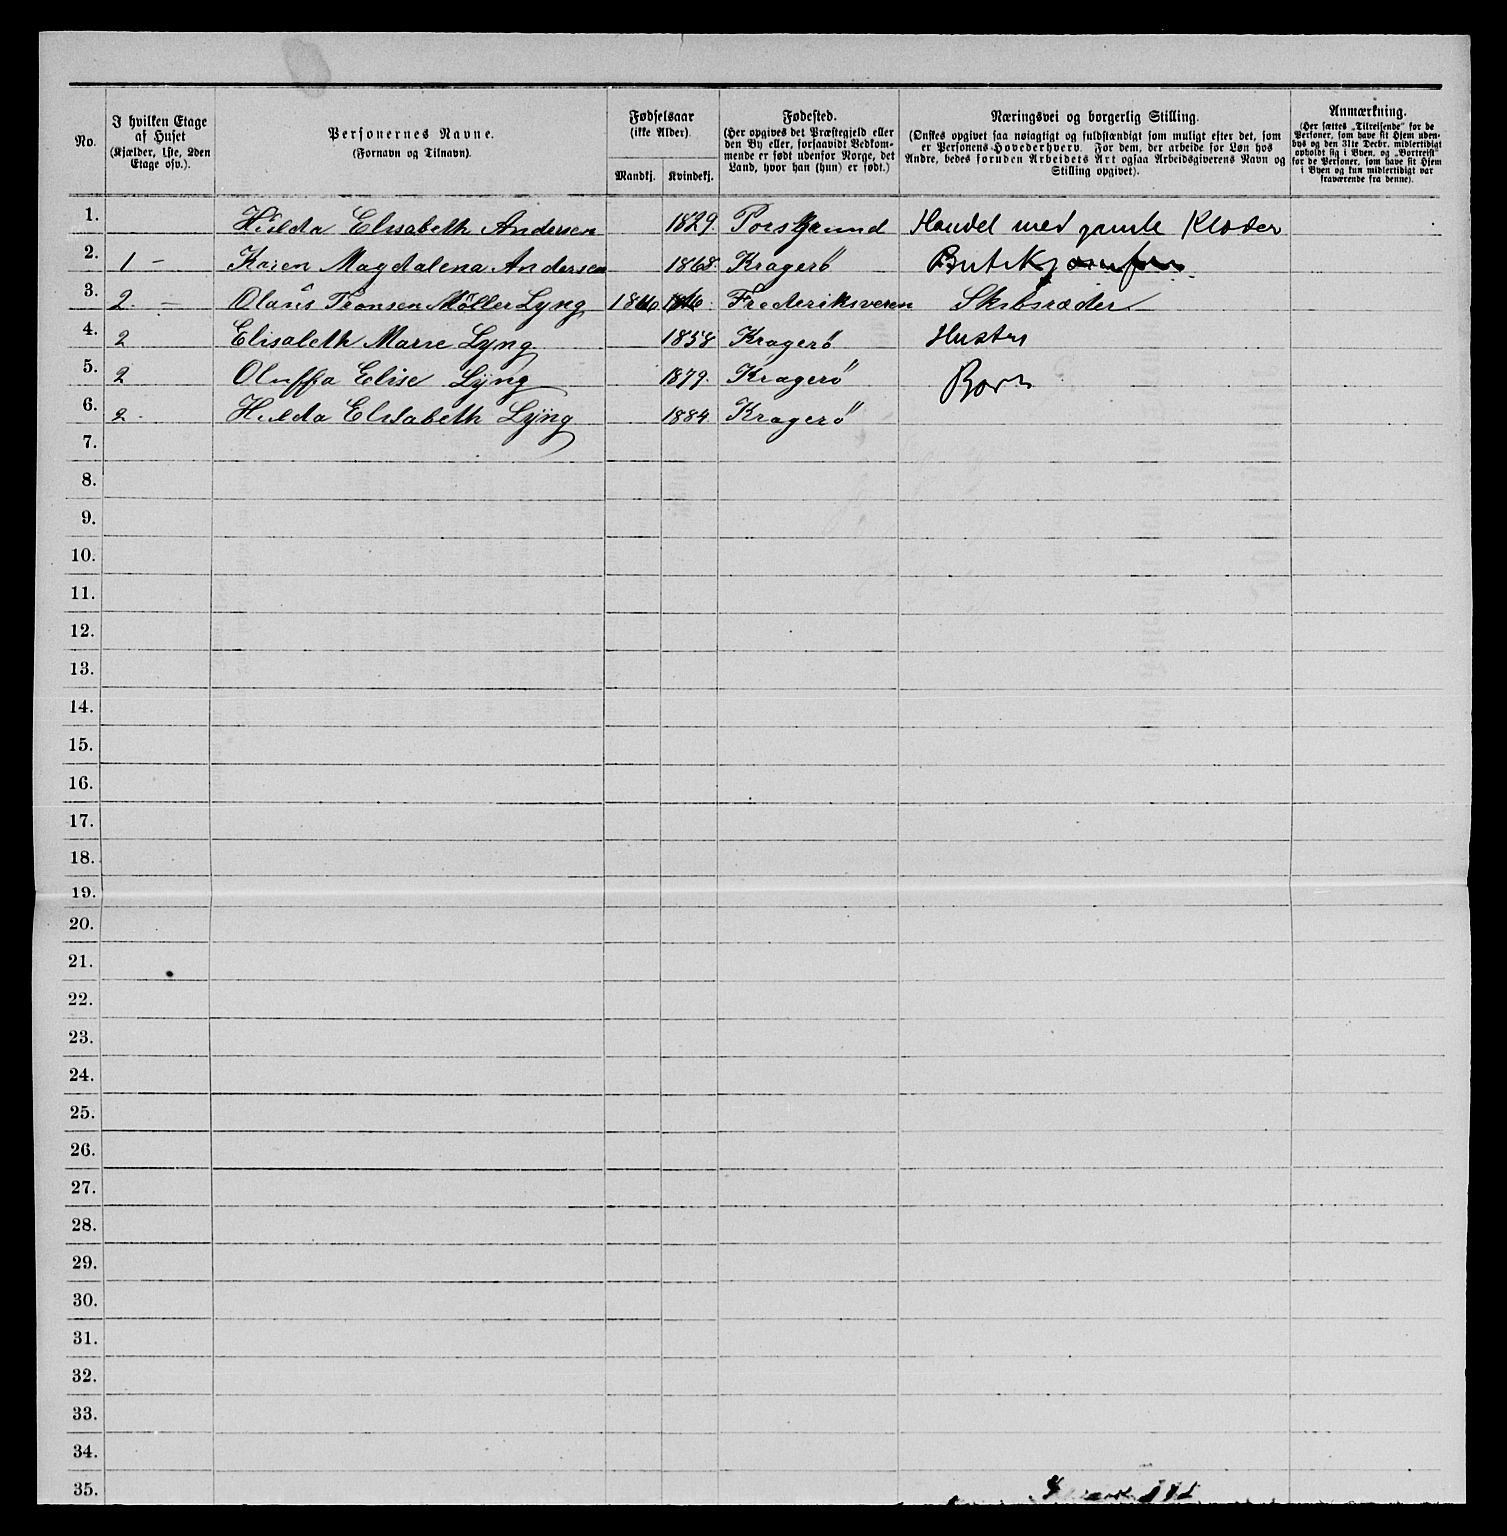 No.
I hvilken Etage
af Huset
(Kjælder, 1ste, 2den
Etage osv.).
Personernes Navne.
(Fornavn og Tilnavn).
Fødselsaar
(ikke Alder).
Mandkj. Kvindekj.
Fødested.
(Her opgives det Præstegjeld eller
den By eller, forsaavidt Vedkom-
mende er født udenfor Norge, det
Land, hvor han (hun) er født.)
Næringsvei og borgerlig Stilling.
(Ønskes opgivet saa nøiagtigt og fuldstændigt som muligt efter det, som
er Personens Hovederhverv. For dem, der arbeide for Løn hos
Andre, bedes foruden Arbeidets Art ogsaa Arbeidsgiverens Navn og
Stilling opgivet).
Anmærkning.
(Her sættes „Tilreisende“ for de
Personer, som have sit Hjem uden-
bys og den 31te Decbr. midlertidigt
opholdt sig i Byen, og „Bortreist“
for de Personer, som have sit Hjem
i Byen og kun midlertidigt var
fraværende fra denne).
1. Hilda Elisabeth Andersen 1829. Porsgrund Handel med gamle Klæder
2. 1 - Karen Magdalena Andersen 1868. Kragerö
3. 2. - Olaus Tronsen Möller Lyng 1846 Frederiksveren Skibsræder
4. 2 Elisabeth Marie Lyng 1858 Kragerö Hustru
5. 2 Oluffa Elise Lyng 1879. Kragerö Børn
6. 2. Hilda Elisabeth Lyng 1884. Kragerö
7.
8.
9.
10.
11.
12.
13.
14.
15.
16.
17.
18.
19.
20.
21.
22.
23.
24.
25.
26.
27.
28.
29.
30.
31.
32.
33.
34.
35.